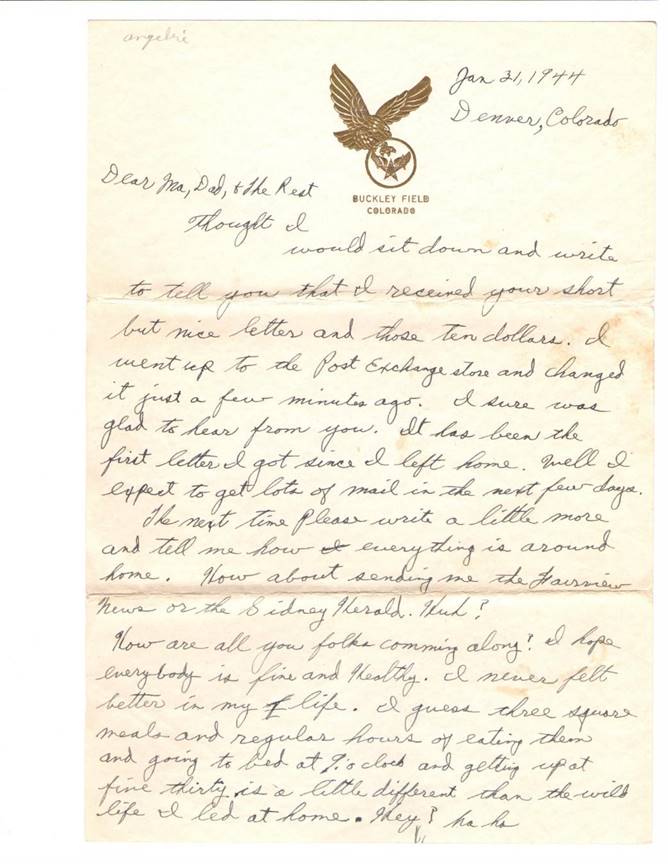 angelie
Jan 21, 1944
Denver, Colorado
BUCKLEY FIELD
COLORADO
Dear Ma, Dad, & the Rest
Thought I
would sit down and write
to tell you that I received your short
but nice letter and those ten dollars. I
went up to the Post Exchange store and changed
it just a few minutes ago. I sure was
glad to hear from you. It has been the
first letter I got since I left home. Well I
expect to get lots of mail in the next few days.
The next time Please write a little more
and tell me how everything is around
home. How about sending me the Fairview
News or the Sidney Herald. Huh?
How are all you folks comming along? I hope
everybody is fine and Healthy. I never felt
better in my life. I guess three square
meals and regular hours of eating them
and going to bed at 9 o'clock and getting up at
five thirty is a little different than the wild
life I led at home. Hey? ha ha